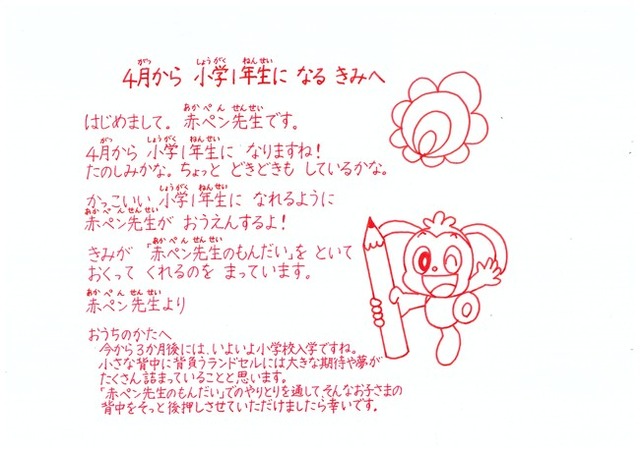 4月から 小学1年生に なる きみへ
はじめまして。 赤ペン先生です。
4月から 小学1年生に なりますね!
たのしみかな。ちょっと どきどきも しているかな。
かっこいい 小学1年生に なれるように
赤ペン先生が おうえんするよ!
きみが 「赤ペン先生のもんだい」を といて
おくって くれるのを まっています。
赤ペン先生より
おうちのかたへ
今から3か月後には、いよいよ小学校入学ですね。
小さな背中に背負うランドセルには大きな期待や夢が
たくさん詰まっていることと思います。
「赤ペン先生のもんだい」でのやりとりを通して、そんなお子さまの
背中をそっと後押しさせていただけましたら幸いです。